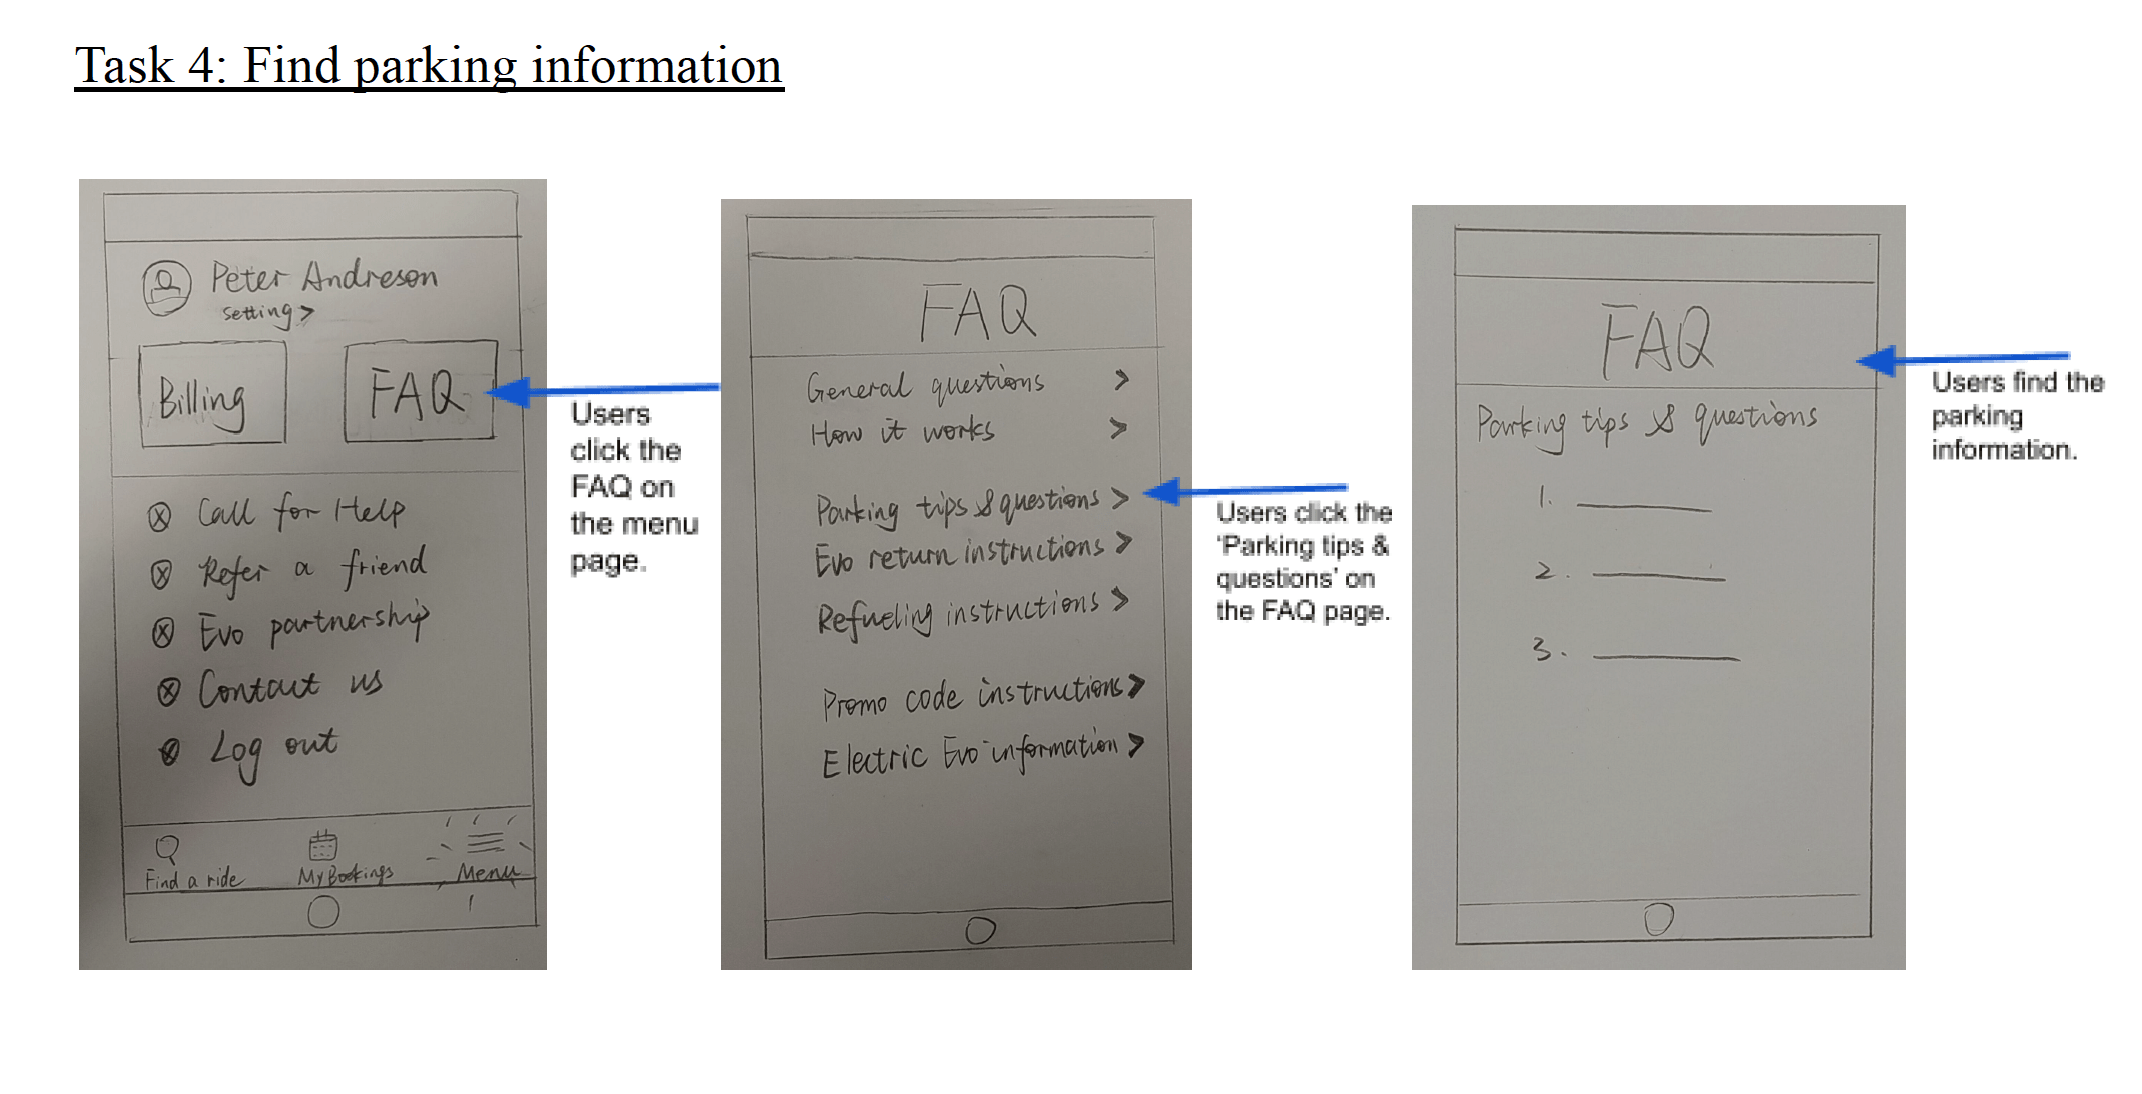 Task 4: Find parking information
Peter Andreson
setting >
Billing
FAQ
Call for Help
Refer a friend
Evo partnership
Contact us
Log out
Find a ride
My Bookings
Menu
Users
click the
FAQ on
the menu
page.
FAQ
General questions >
How it works >
Parking tips & questions >
Evo return instructions >
Refueling instructions >
Promo code instructions >
Electric Evo information >
Users click the
'Parking tips &
questions' on
the FAQ page.
FAQ
Parking tips & questions
1.
2.
3.
Users find the
parking
information.